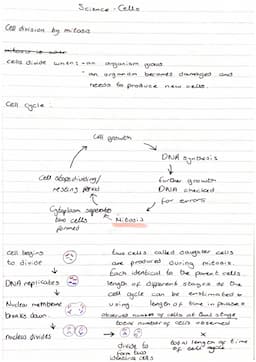 Science - Cells
Cell division by mitosis
cells divide when: - an organism grows.
- an organism becomes damaged and
needs to produce new cells.
Cell cycle:
Cell growth
DNA synthesis
further growth
DNA checked
for errors
Mitosis
Cytoplasm seperates
two cells
formed
Cell stops dividing/
resting period
cell begins
to divide
DNA replicates
Nuclear membrane
breaks down.
nucleus divides
divide to
form two
identical cells
two cells called daughter cells
are produced during mitosis.
Each identical to the parent cells.
length of different stages of the
cell cycle can be estimated
using length of time in phase =
observed number of cells at that stage
total number of cells observed
x
total length of time
of cell cycle